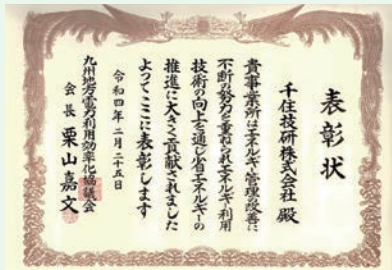 表彰状
千住技研株式会社 殿
貴事業所はエネルギー管理の改善に
不断の努力を重ねられエネルギー利用
技術の向上を通し省エネルギーの
推進に大きく貢献されました
よってここに表彰します
令和四年二月二十五日
九州地方電力利用効率化協議会
会長 栗山嘉文